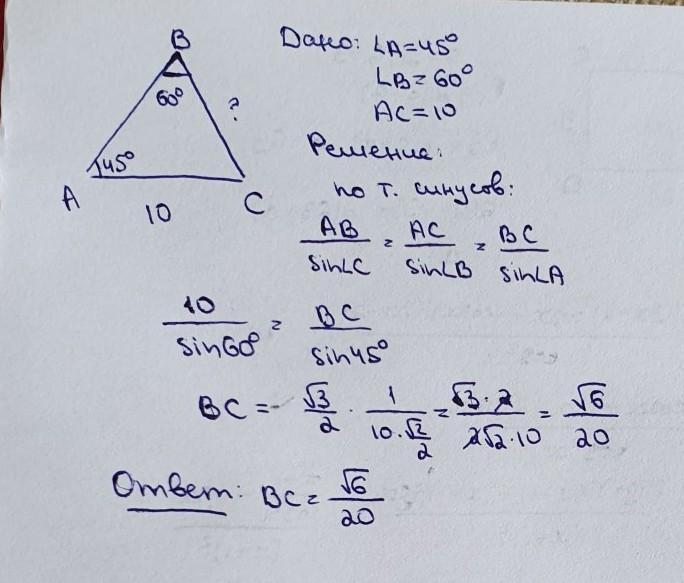 B
60°
?
45°
A
10
C
Дано: ∠A=45°
∠B=60°
AC=10
Решение:
по т. синусов:
AB/sin∠C = AC/sin∠B = BC/sin∠A
10/sin60° = BC/sin45°
BC = √3/2 · 1/(10·√2/2) = √3·2/(2√2·10) = √6/20
Ответ: BC = √6/20